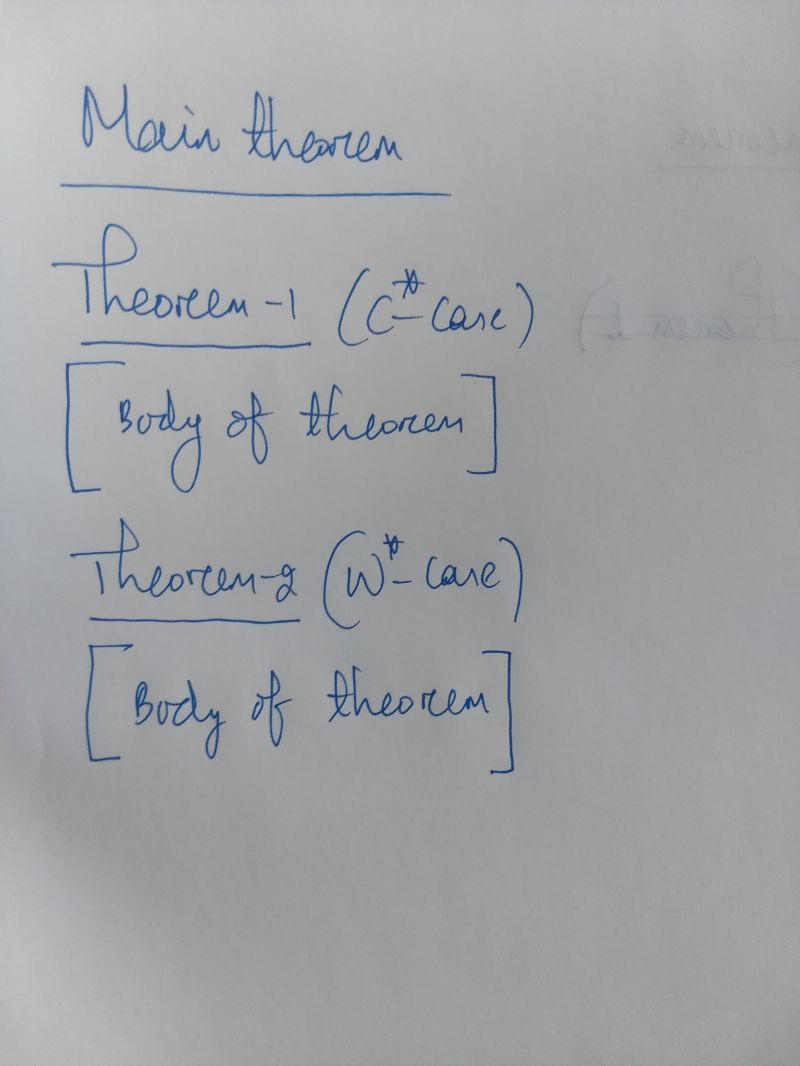 Main theorem
Theorem-1 (C*-case)
[Body of theorem]
Theorem-2 (W*-case)
[Body of theorem]